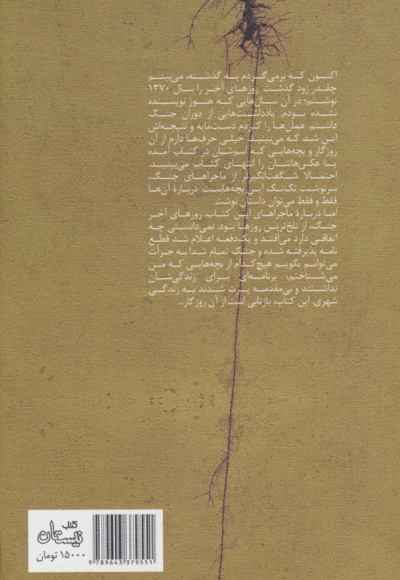 اکنون که برمی‌گردم به گذشته، می‌بینم
چقدر زود گذشت. روزهای آخر را سال ۱۳۷۰
نوشتم؛ در آن سال‌هایی که هنوز نویسنده
نشده بودم. یادداشت‌هایی از دوران جنگ
داشتم. همان‌ها را کردم دست‌مایه و نتیجه‌اش
این شد که می‌بینید. خیلی حرف‌ها دارم از آن
روزگار و بچه‌هایی که اسمشان در کتاب آمده
یا عکس‌هاشان را انتهای کتاب می‌بینید.
احتمالا شگفت‌انگیزتر از ماجراهای جنگ،
سرنوشت تک‌تک این بچه‌هاست. دربارهٔ آن‌ها
فقط و فقط می‌توان داستان نوشت.
اما دربارهٔ ماجراهای این کتاب. روزهای آخر
جنگ، از تلخ‌ترین روزها بود. نمی‌دانستی چه
اتفاقی دارد می‌افتد و یک‌دفعه اعلام شد قطع
نامه پذیرفته شده و جنگ تمام شد! به جرأت
می‌توانم بگویم هیچ‌کدام از بچه‌هایی که من
می‌شناختم، برنامه‌ای برای زندگی‌شان
نداشتند و بی‌مقدمه پرت شدند به زندگی
شهری. این کتاب، بازتابی است از آن روزگار...
کتاب
نیستان
۱۵۰۰۰ تومان
9 789643 379551